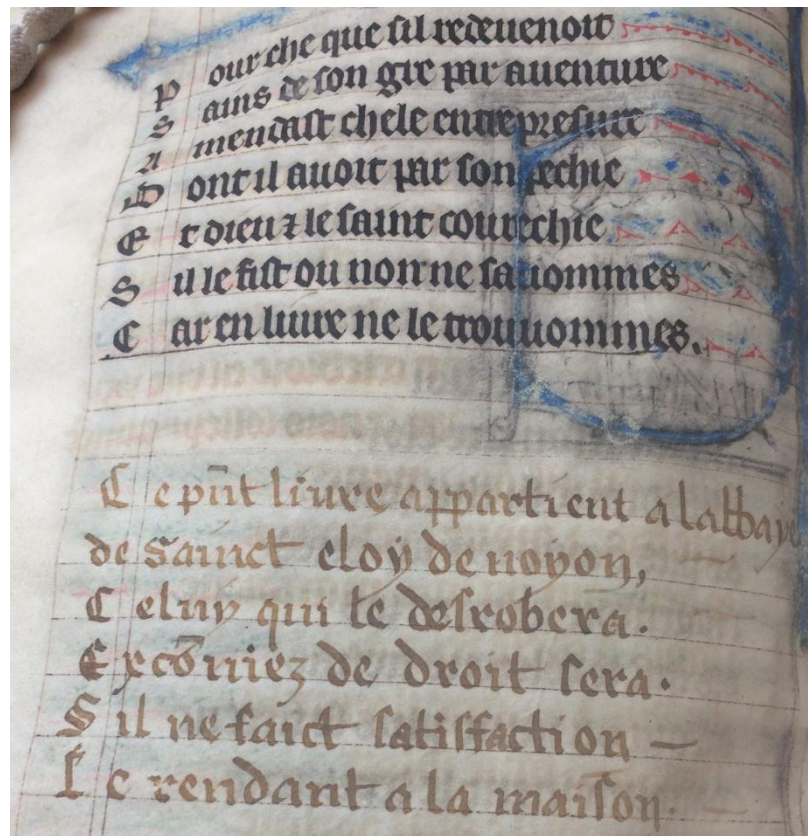 P our che que sil redevenoit
S ains de son gre par auenture
A mendast chele entrepresure
D ont il auoit par son pechie
E t dieu ⁊ le saint courechie
S il le fist ou non ne sauommes
C ar en liure ne le trouuommes.
C e pn̄t liure appartient a labbaye
de sainct eloy de noyon,
C eluy qui le desrobera.
E xcōniez de droit sera.
S il ne faict satisfaction
L e rendant a la maison.